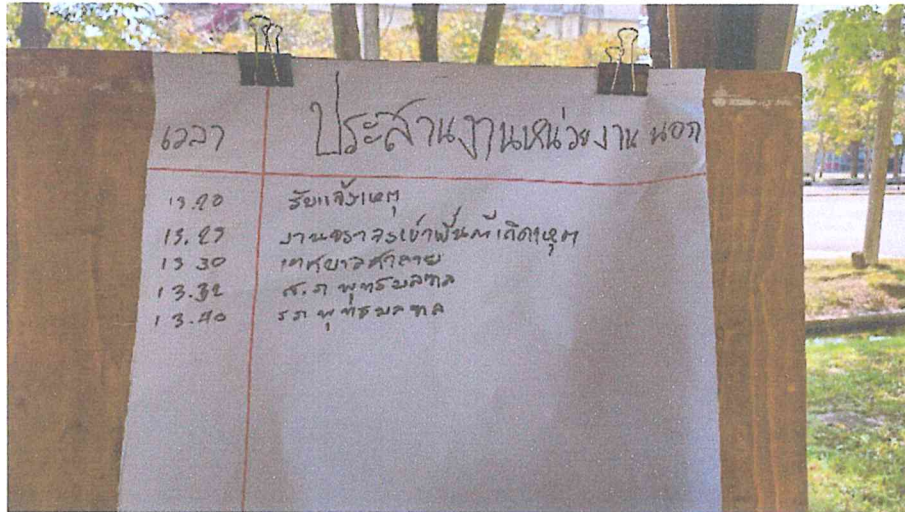 เวลา ประสานงานหน่วยงานนอก
13.20 รับแจ้งเหตุ
13.25 งานจราจรเข้าพื้นที่เกิดเหตุ
13.30 เทศบาลศาลายา
13.32 ส.ภ พุทธมลฑล
13.40 รพ พุทธมลฑล